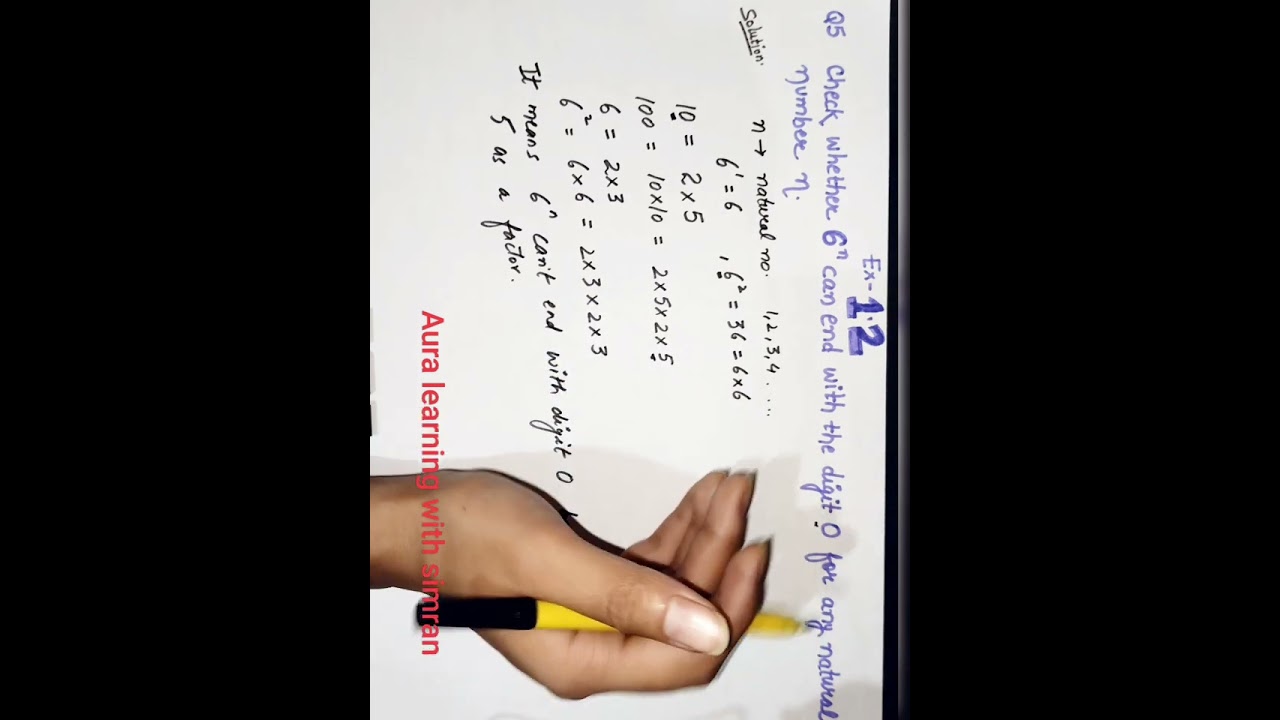 Ex-1.2
Q5 Check whether 6ⁿ can end with the digit 0 for any natural
number n.
Solution:
n → natural no. 1,2,3,4.....
6¹ = 6 , 6² = 36 = 6×6
10 = 2×5
100 = 10×10 = 2×5×2×5
6 = 2×3
6² = 6×6 = 2×3×2×3
It means 6ⁿ can't end with digit 0
5 as a factor.
Aura learning with simran